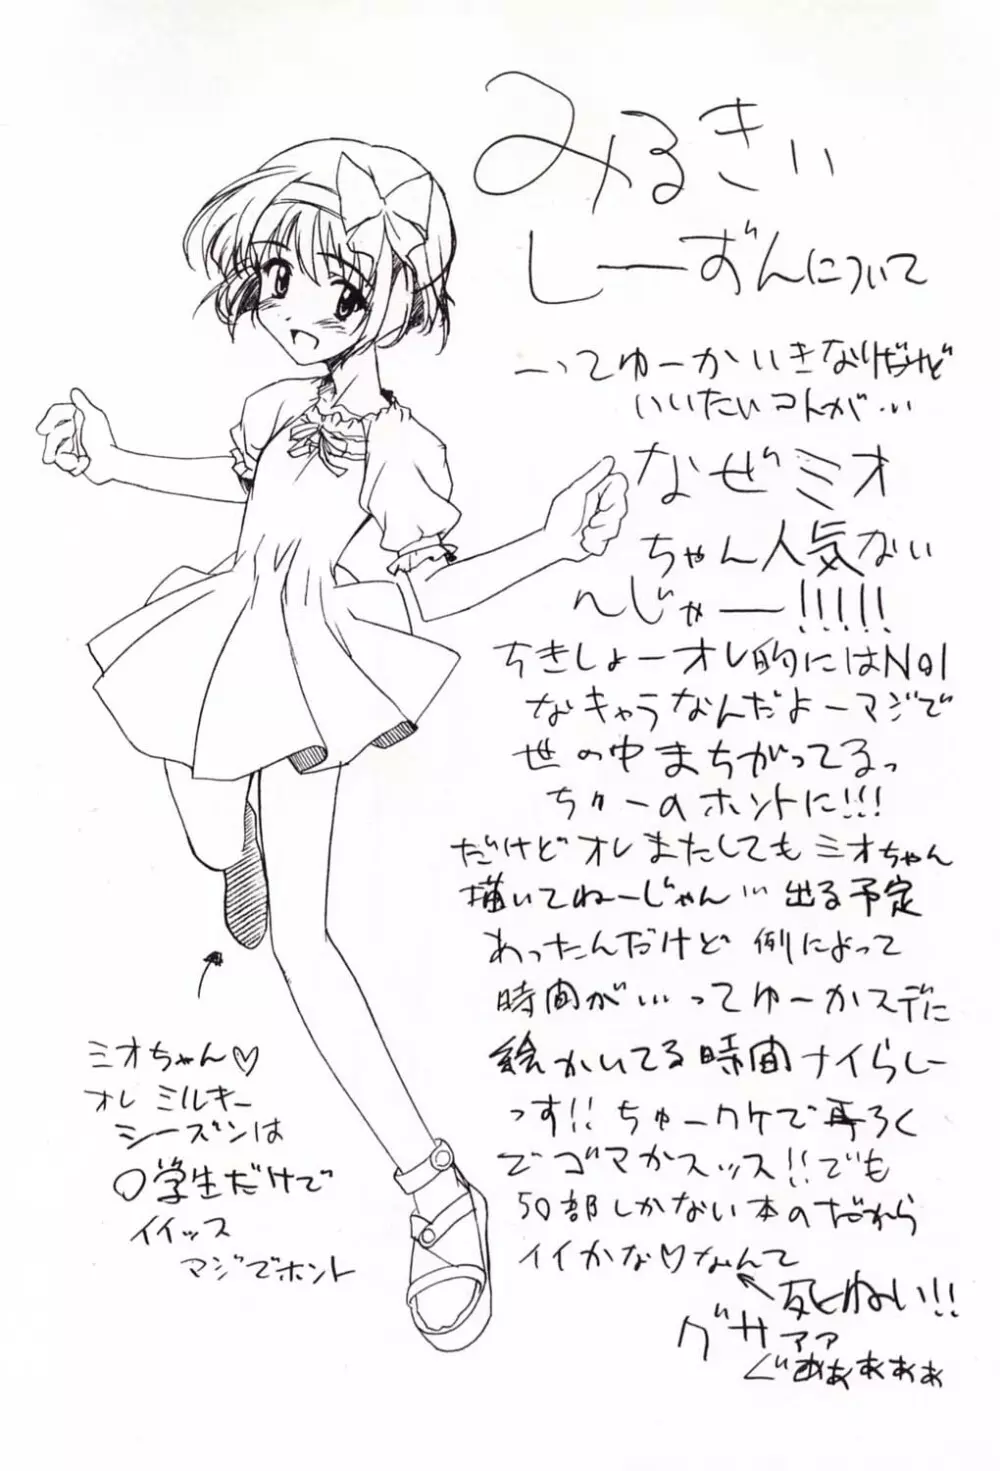 みるきぃ
しーずんについて
―ってゆーかいきなりだけど
いいたいコトが…
なぜミオ
ちゃん人気ない
んじゃー!!!!!
ちきしょーオレ的にはNo1
なキャラなんだよーマジで
世の中まちがってるっ
ちゅーのホントに!!!
だけどオレまたしてもミオちゃん
描いてねーじゃん…出る予定
あったんだけど例によって
時間が…ってゆーかスデに
絵かいてる時間ナイらしー
っす!!ちゅーワケで再ろく
でゴマかスッス!!でも
50部しかない本のだから
イイかな♡なんて
←死ねい!!
グサァァ
ぐああぁぁぁぁ
ミオちゃん♡
オレミルキー
シーズンは
○学生だけで
イイッス
マジでホント